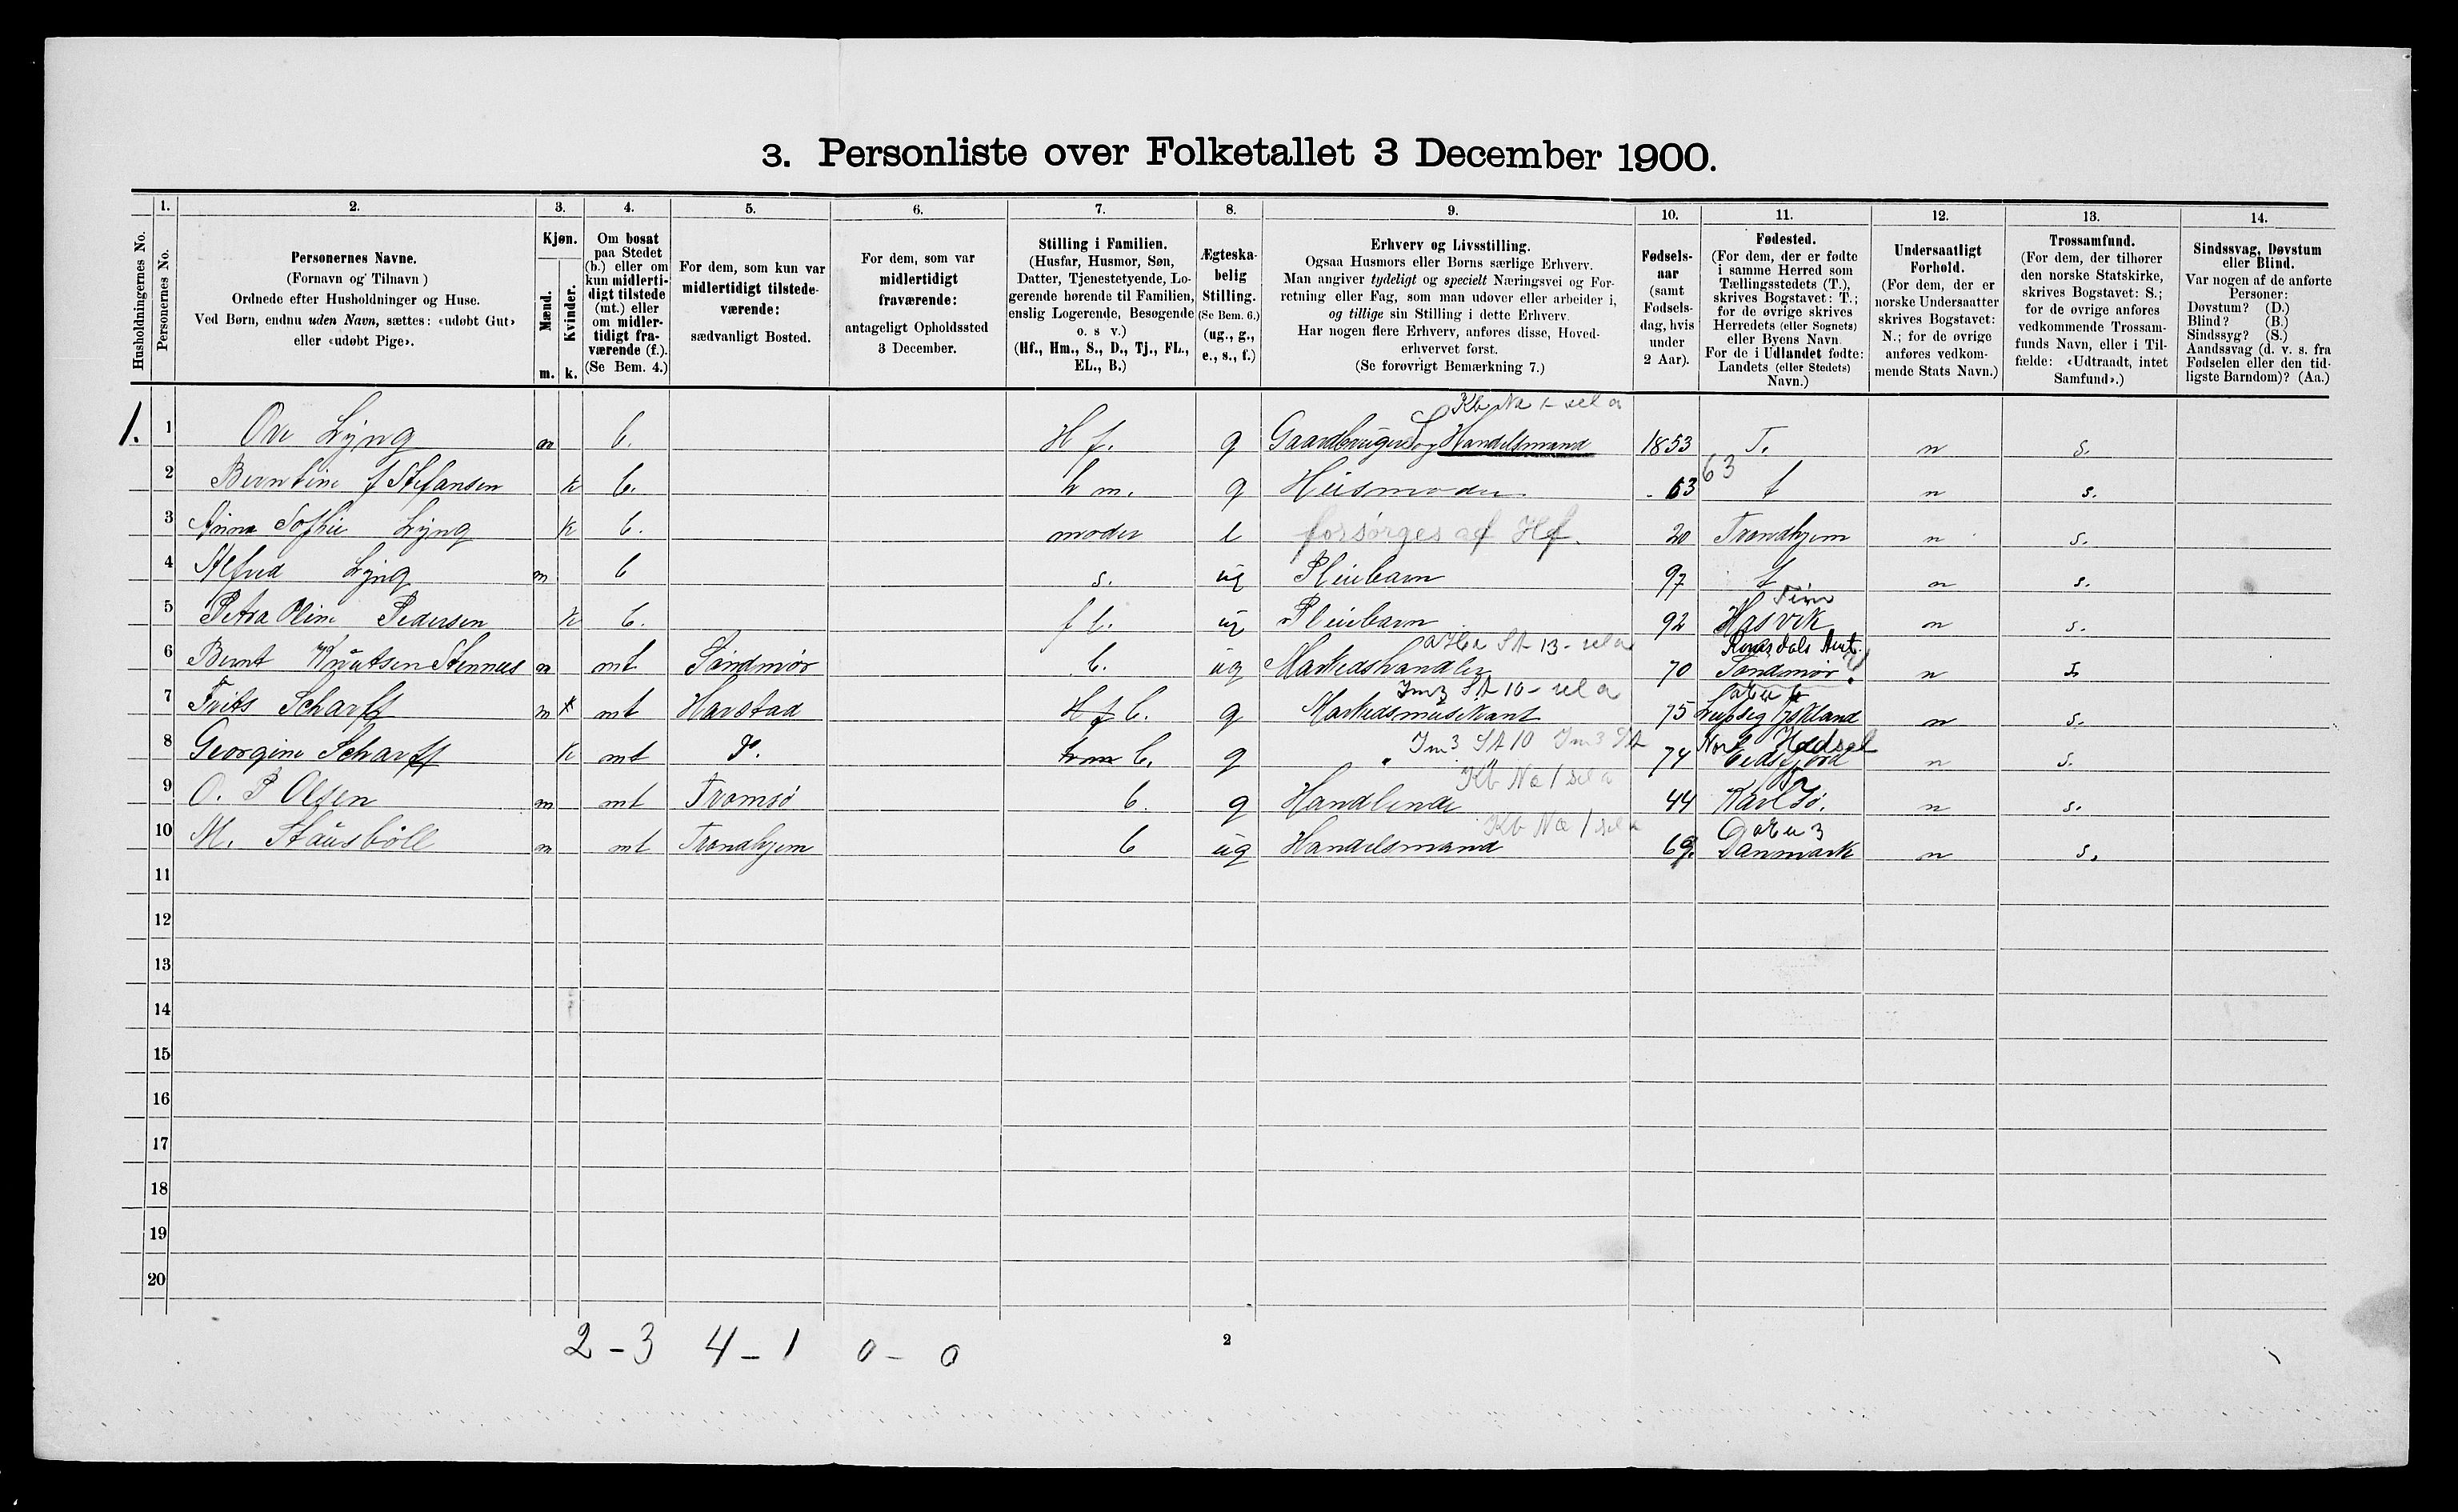 3. Personliste over Folketallet 3 December 1900.
Husholdningernes No.
1. Personernes No.
2. Personernes Navne.
(Fornavn og Tilnavn)
Ordnede efter Husholdninger og Huse.
Ved Børn, endnu uden Navn, sættes: «udøbt Gut»
eller «udøbt Pige».
3. Kjøn.
Mænd. m.
Kvinder. k.
4. Om bosat
paa Stedet
(b.) eller om
kun midlerti-
digt tilstede
(mt.) eller
om midler-
tidigt fra-
værende (f.).
(Se Bem. 4.)
5. For dem, som kun var
midlertidigt tilstede-
værende:
sædvanligt Bosted.
6. For dem, som var
midlertidigt
fraværende:
antageligt Opholdssted
3 December.
7. Stilling i Familien.
(Husfar, Husmor, Søn,
Datter, Tjenestetyende, Lo-
gerende hørende til Familien,
enslig Logerende, Besøgende
o. s v.)
(Hf., Hm., S., D., Tj., FL.,
EL., B.)
8. Ægteska-
belig
Stilling.
(Se Bem. 6.)
(ug., g.,
e., s., f.)
9. Erhverv og Livsstilling.
Ogsaa Husmors eller Børns særlige Erhverv.
Man angiver tydeligt og specielt Næringsvei og For-
retning eller Fag, som man udøver eller arbeider i,
og tillige sin Stilling i dette Erhverv.
Har nogen flere Erhverv, anføres disse, Hoved-
erhvervet først.
(Se forøvrigt Bemærkning 7.)
10. Fødsels-
aar
(samt
Fødsels-
dag, hvis
under
2 Aar).
11. Fødested.
(For dem, der er fødte
i samme Herred som
Tællingsstedets (T.),
skrives Bogstavet: T.;
for de øvrige skrives
Herredets (eller Sognets)
eller Byens Navn.
For de i Udlandet fødte:
Landets (eller Stedets)
Navn.)
12. Undersaatligt
Forhold.
(For dem, der er
norske Undersaatter
skrives Bogstavet:
N.; for de øvrige
anføres vedkom-
mende Stats Navn.)
13. Trossamfund.
(For dem, der tilhører
den norske Statskirke,
skrives Bogstavet: S.;
for de øvrige anføres
vedkommende Trossam-
funds Navn, eller i Til-
fælde: «Udtraadt, intet
Samfund».)
14. Sindssvag, Døvstum
eller Blind.
Var nogen af de anførte
Personer:
Døvstum? (D.)
Blind? (B.)
Sindssyg? (S.)
Aandssvag (d. v. s. fra
Fødselen eller den tid-
ligste Barndom)? (Aa.)
1. 1 Ove Lyng m b. Hf. g Gaardbruger og Handelsmand 1853 T. n s.
2 Berntine f Stefansen k b. hm. g Husmoder 63 63 t n s.
3 Anna Sofhie Lyng k b. moder e forsørges af Hf. 20 Trondhjem n s.
4 Alfred Lyng m b s. ug Pleiebarn 97 t n s.
5 Petra Oline Pedersen k b. fl. ug Pleiebarn 92 Hasvik n s.
6 Bernt Knutsen Stennes m mt Søndmør b. ug Markedshandler 70 Romsdals Amt. Søndmør n s
7 Frits Scharff m k mt Harstad Hf b. g Markedsmusikant 75 Leipsig Tyskland n s.
8 Georgine Scharff k mt D°. hm b. g " " 74 Hadsel Eidsfjord n s.
9 O. P Olsen m mt Tromsø b. g Handlende 44 Karlsø. n s.
10 M. Stausbøll m mt Trondhjem b ug Handelsmand 69. Danmark n s.
11
12
13
14
15
16
17
18
19
20
2 - 3 4 - 1 0 - 0
2